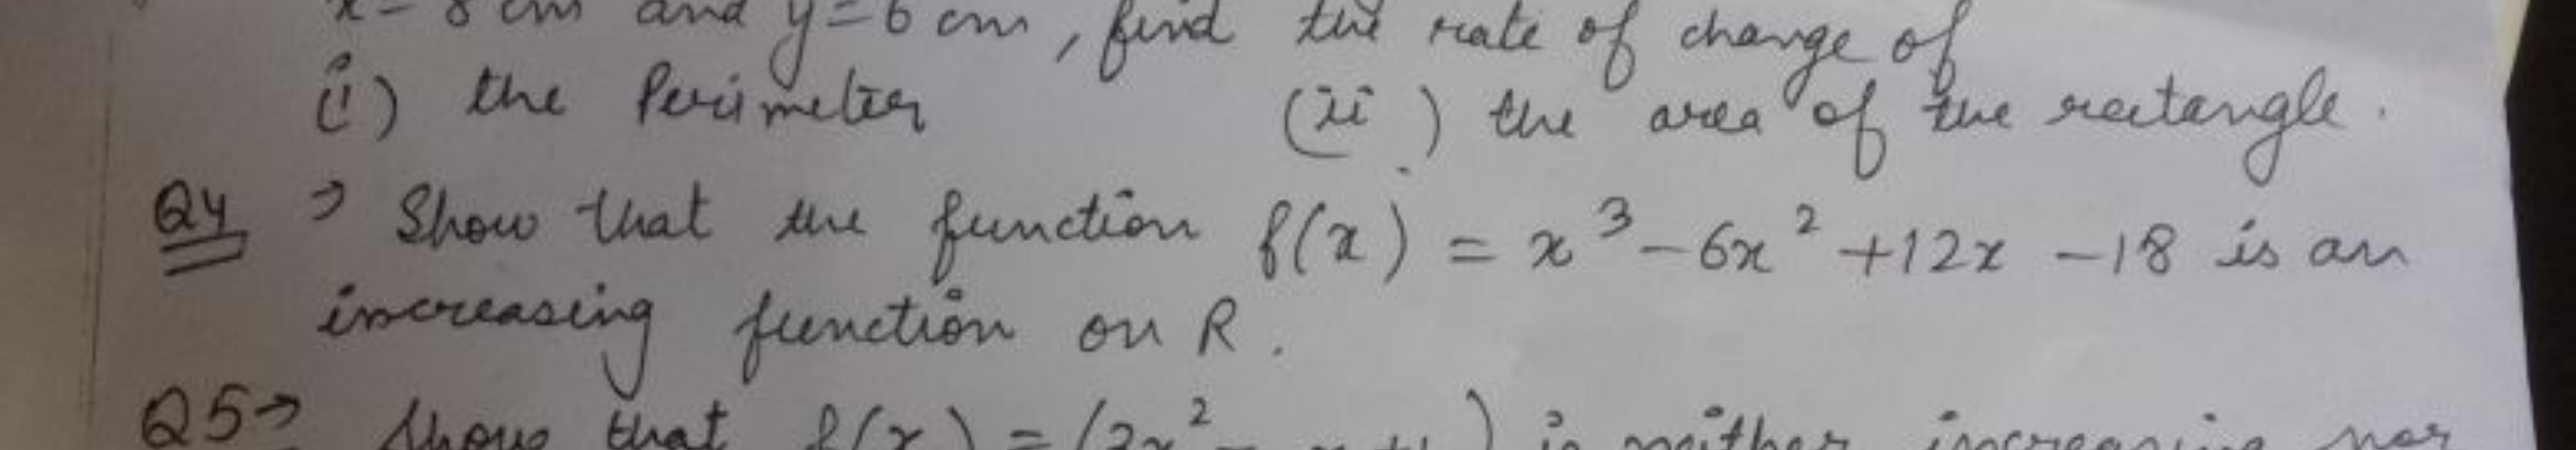 x = 8 cm and y = 6 cm, find the rate of change of
(i) the Perimeter (ii) the area of the rectangle.
Q4 → Show that the function f(x) = x³ - 6x² + 12x - 18 is an
increasing function on R.
Q5 → Show that f(x) = ( x² - x + ) is neither increasing nor